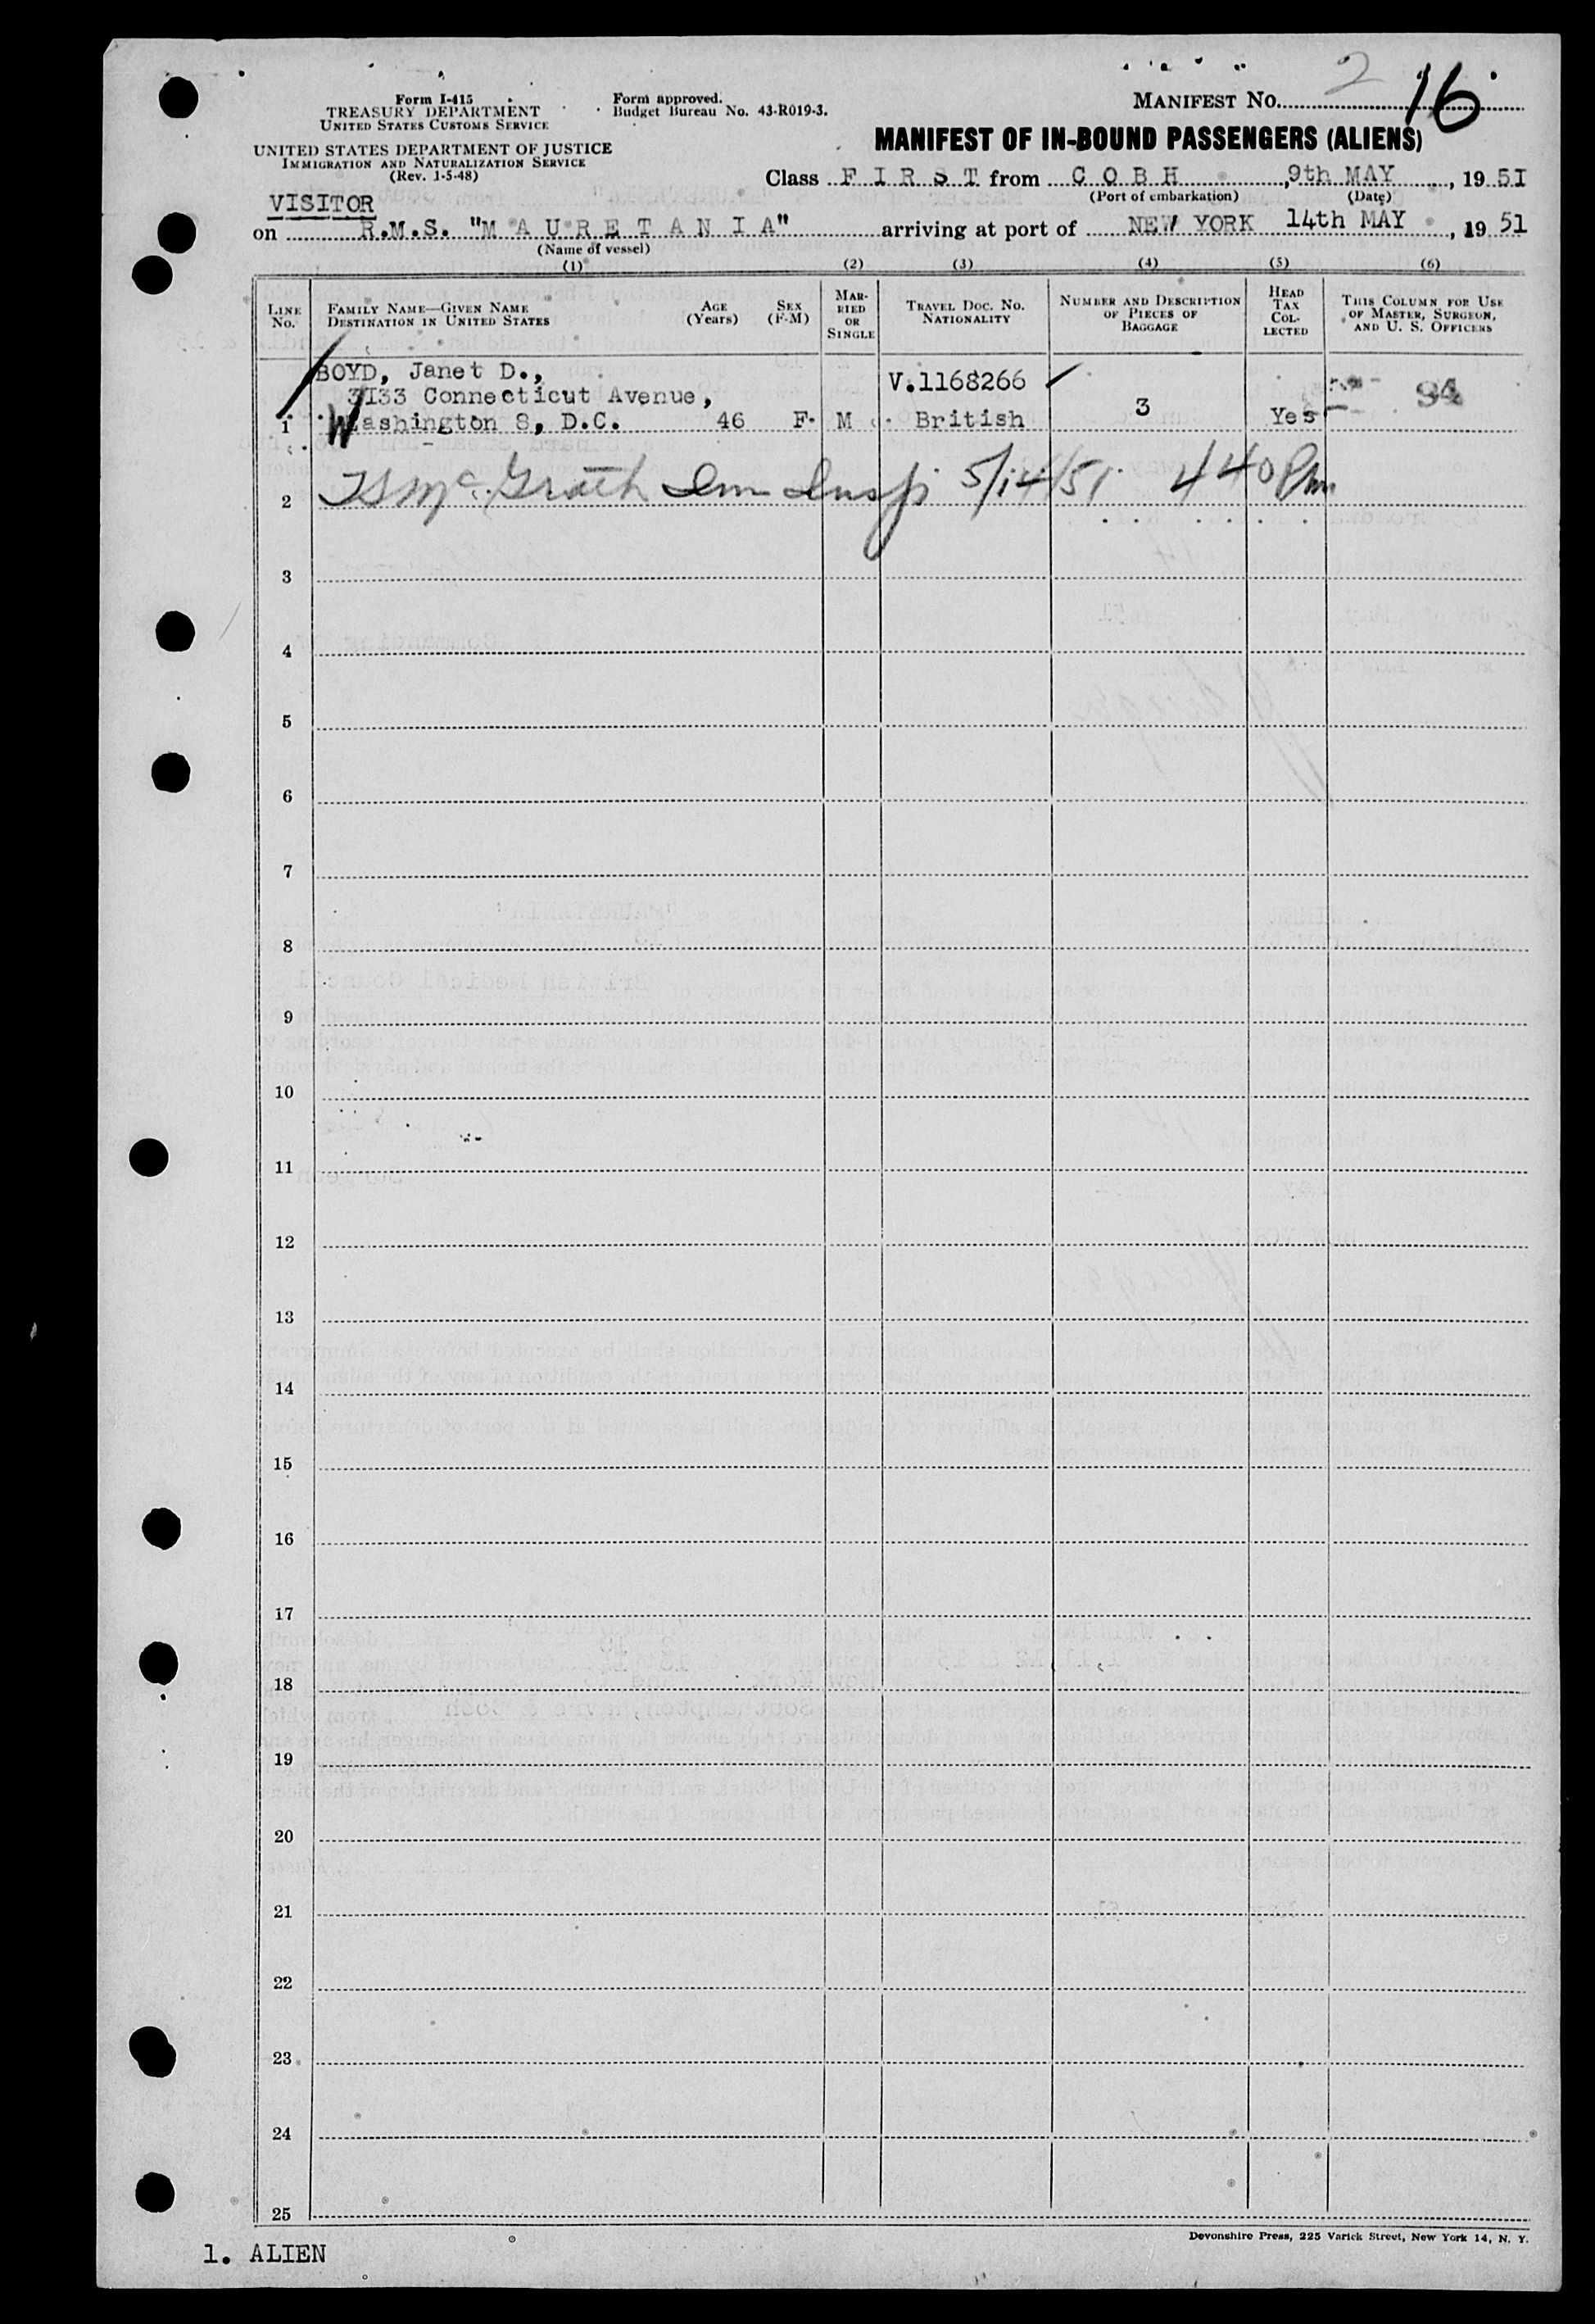 2 16
Form I-415
TREASURY DEPARTMENT
UNITED STATES CUSTOMS SERVICE
UNITED STATES DEPARTMENT OF JUSTICE
IMMIGRATION AND NATURALIZATION SERVICE
(Rev. 1-5-48)
Form approved.
Budget Bureau No. 43-R019-3.
MANIFEST No.
MANIFEST OF IN-BOUND PASSENGERS (ALIENS)
Class F I R S T from C O B H, 9th MAY, 19 51
(Port of embarkation) (Date)
VISITOR
on R.M.S. "M A U R E T A N I A" arriving at port of NEW YORK 14th MAY, 19 51
(Name of vessel)
(1) (2) (3) (4) (5) (6)
LINE No.
FAMILY NAME—GIVEN NAME
DESTINATION IN UNITED STATES
AGE (Years)
SEX (F-M)
MARRIED OR SINGLE
TRAVEL DOC. NO.
NATIONALITY
NUMBER AND DESCRIPTION OF PIECES OF BAGGAGE
HEAD TAX COLLECTED
THIS COLUMN FOR USE OF MASTER, SURGEON, AND U. S. OFFICERS
BOYD, Janet D., V.1168266
3133 Connecticut Avenue, 3 94
1 Washington 8, D.C. 46 F M British Yes
2 McGrath Imm Insp 5/14/51 440 Pm
3
4
5
6
7
8
9
10
11
12
13
14
15
16
17
18
19
20
21
22
23
24
25
Devonshire Press, 225 Varick Street, New York 14, N. Y.
1. ALIEN